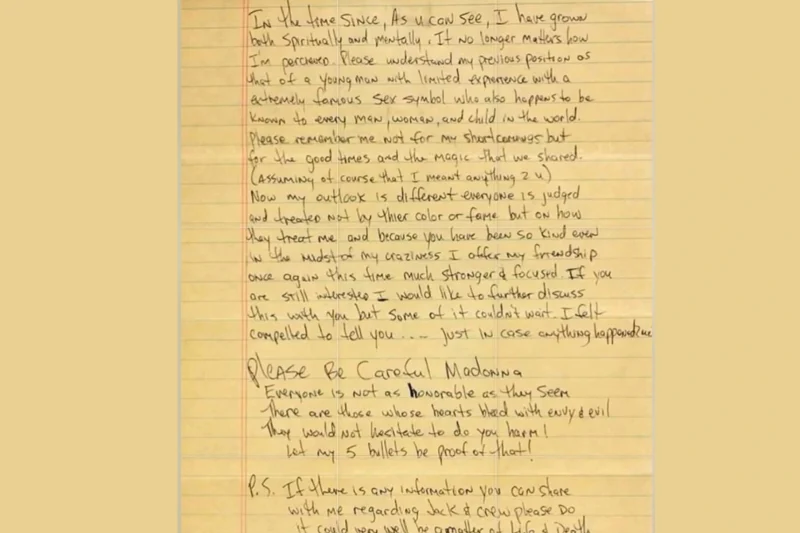 In the time since, As u can see, I have grown
both spiritually and mentally. It no longer matters how
I'm perceived. Please understand my previous position as
that of a young man with limited experience with a
extremely famous sex symbol who also happens to be
known to every man, woman, and child in the world.
Please remember me not for my shortcomings but
for the good times and the magic that we shared.
(Assuming of course that I meant anything 2 u)
Now my outlook is different everyone is judged
and treated not by thier color or fame but on how
they treat me and because you have been so kind even
in the midst of my craziness I offer my friendship
once again this time much stronger & focused. If you
are still interested I would like to further discuss
this with you but some of it couldn't wait. I felt
compelled to tell you .... just in case anything happened 2 me
Please Be Careful Madonna
Everyone is not as honorable as they seem
There are those whose hearts bleed with envy & evil
They would not hesitate to do you harm!
Let my 5 bullets be proof of that!
P.S. If there is any information you can share
with me regarding Jack & crew please Do
it could very well be a matter of Life & Death